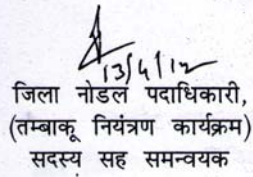 13/4/12
जिला नोडल पदाधिकारी,
(तम्बाकू नियंत्रण कार्यक्रम)
सदस्य सह समन्वयक